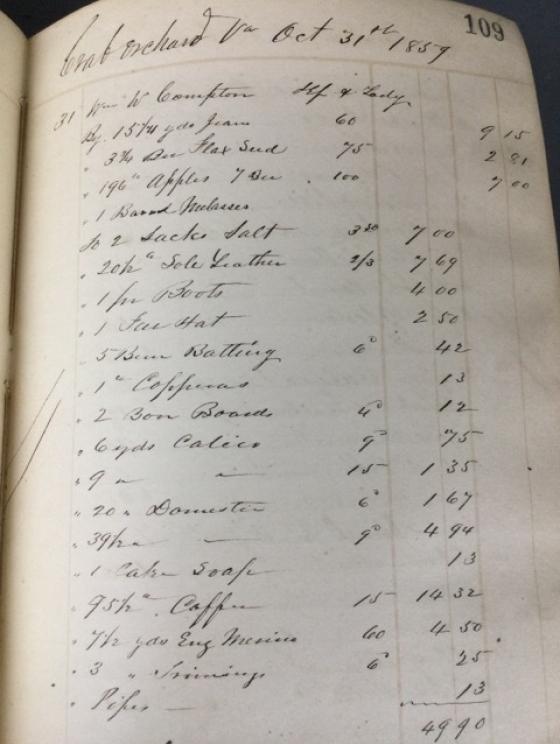 109
Crab Orchard Va Oct 31st 1859
31 Wm W Compton Hf & Lady
By 15 1/4 yds Jeans 60 9 15
" 3 3/4 Bu Flax Seed 75 2 81
" 196 " Apples 7 Bu 100 7 00
" 1 Barrel Molasses
To 2 Sacks Salt 3 50 7 00
" 20 1/2 " Sole Leather 2/3 7 69
" 1 pr Boots 4 00
" 1 Fur Hat 2 50
" 5 Batting 6 42
" 1 " Copperas 13
" 2 Bon Boards 4 12
" 6 yds Calico 9 75
" 9 " " 15 1 35
" 20 " Domestic 6 1 67
" 39 1/2 " " 9 4 94
" 1 Cake Soap 13
" 95 1/2 " Coffee 15 14 32
" 7 1/2 yds Eng Merino 60 4 50
" 3 " Trimings 6 25
" Pipes 13
49 90